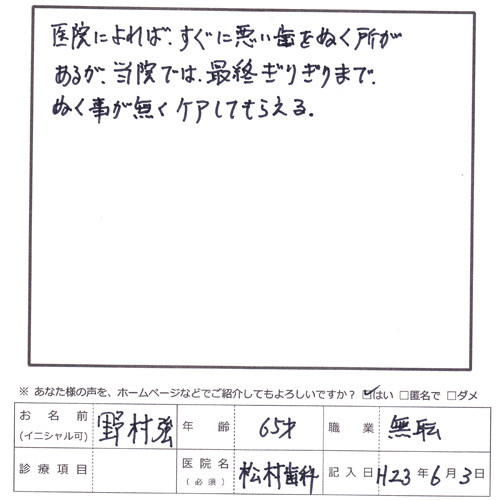 医院によれば、すぐに悪い歯をぬく所が
あるが、当院では、最終ぎりぎりまで、
ぬく事が無くケアしてもらえる.
※ あなた様の声を、ホームページなどでご紹介してもよろしいですか？ ☑はい □匿名で □ダメ
お名前 (イニシャル可) 野村強 年齢 65才 職業 無転
診療項目 医院名 (必須) 松村歯科 記入日 H23年6月3日